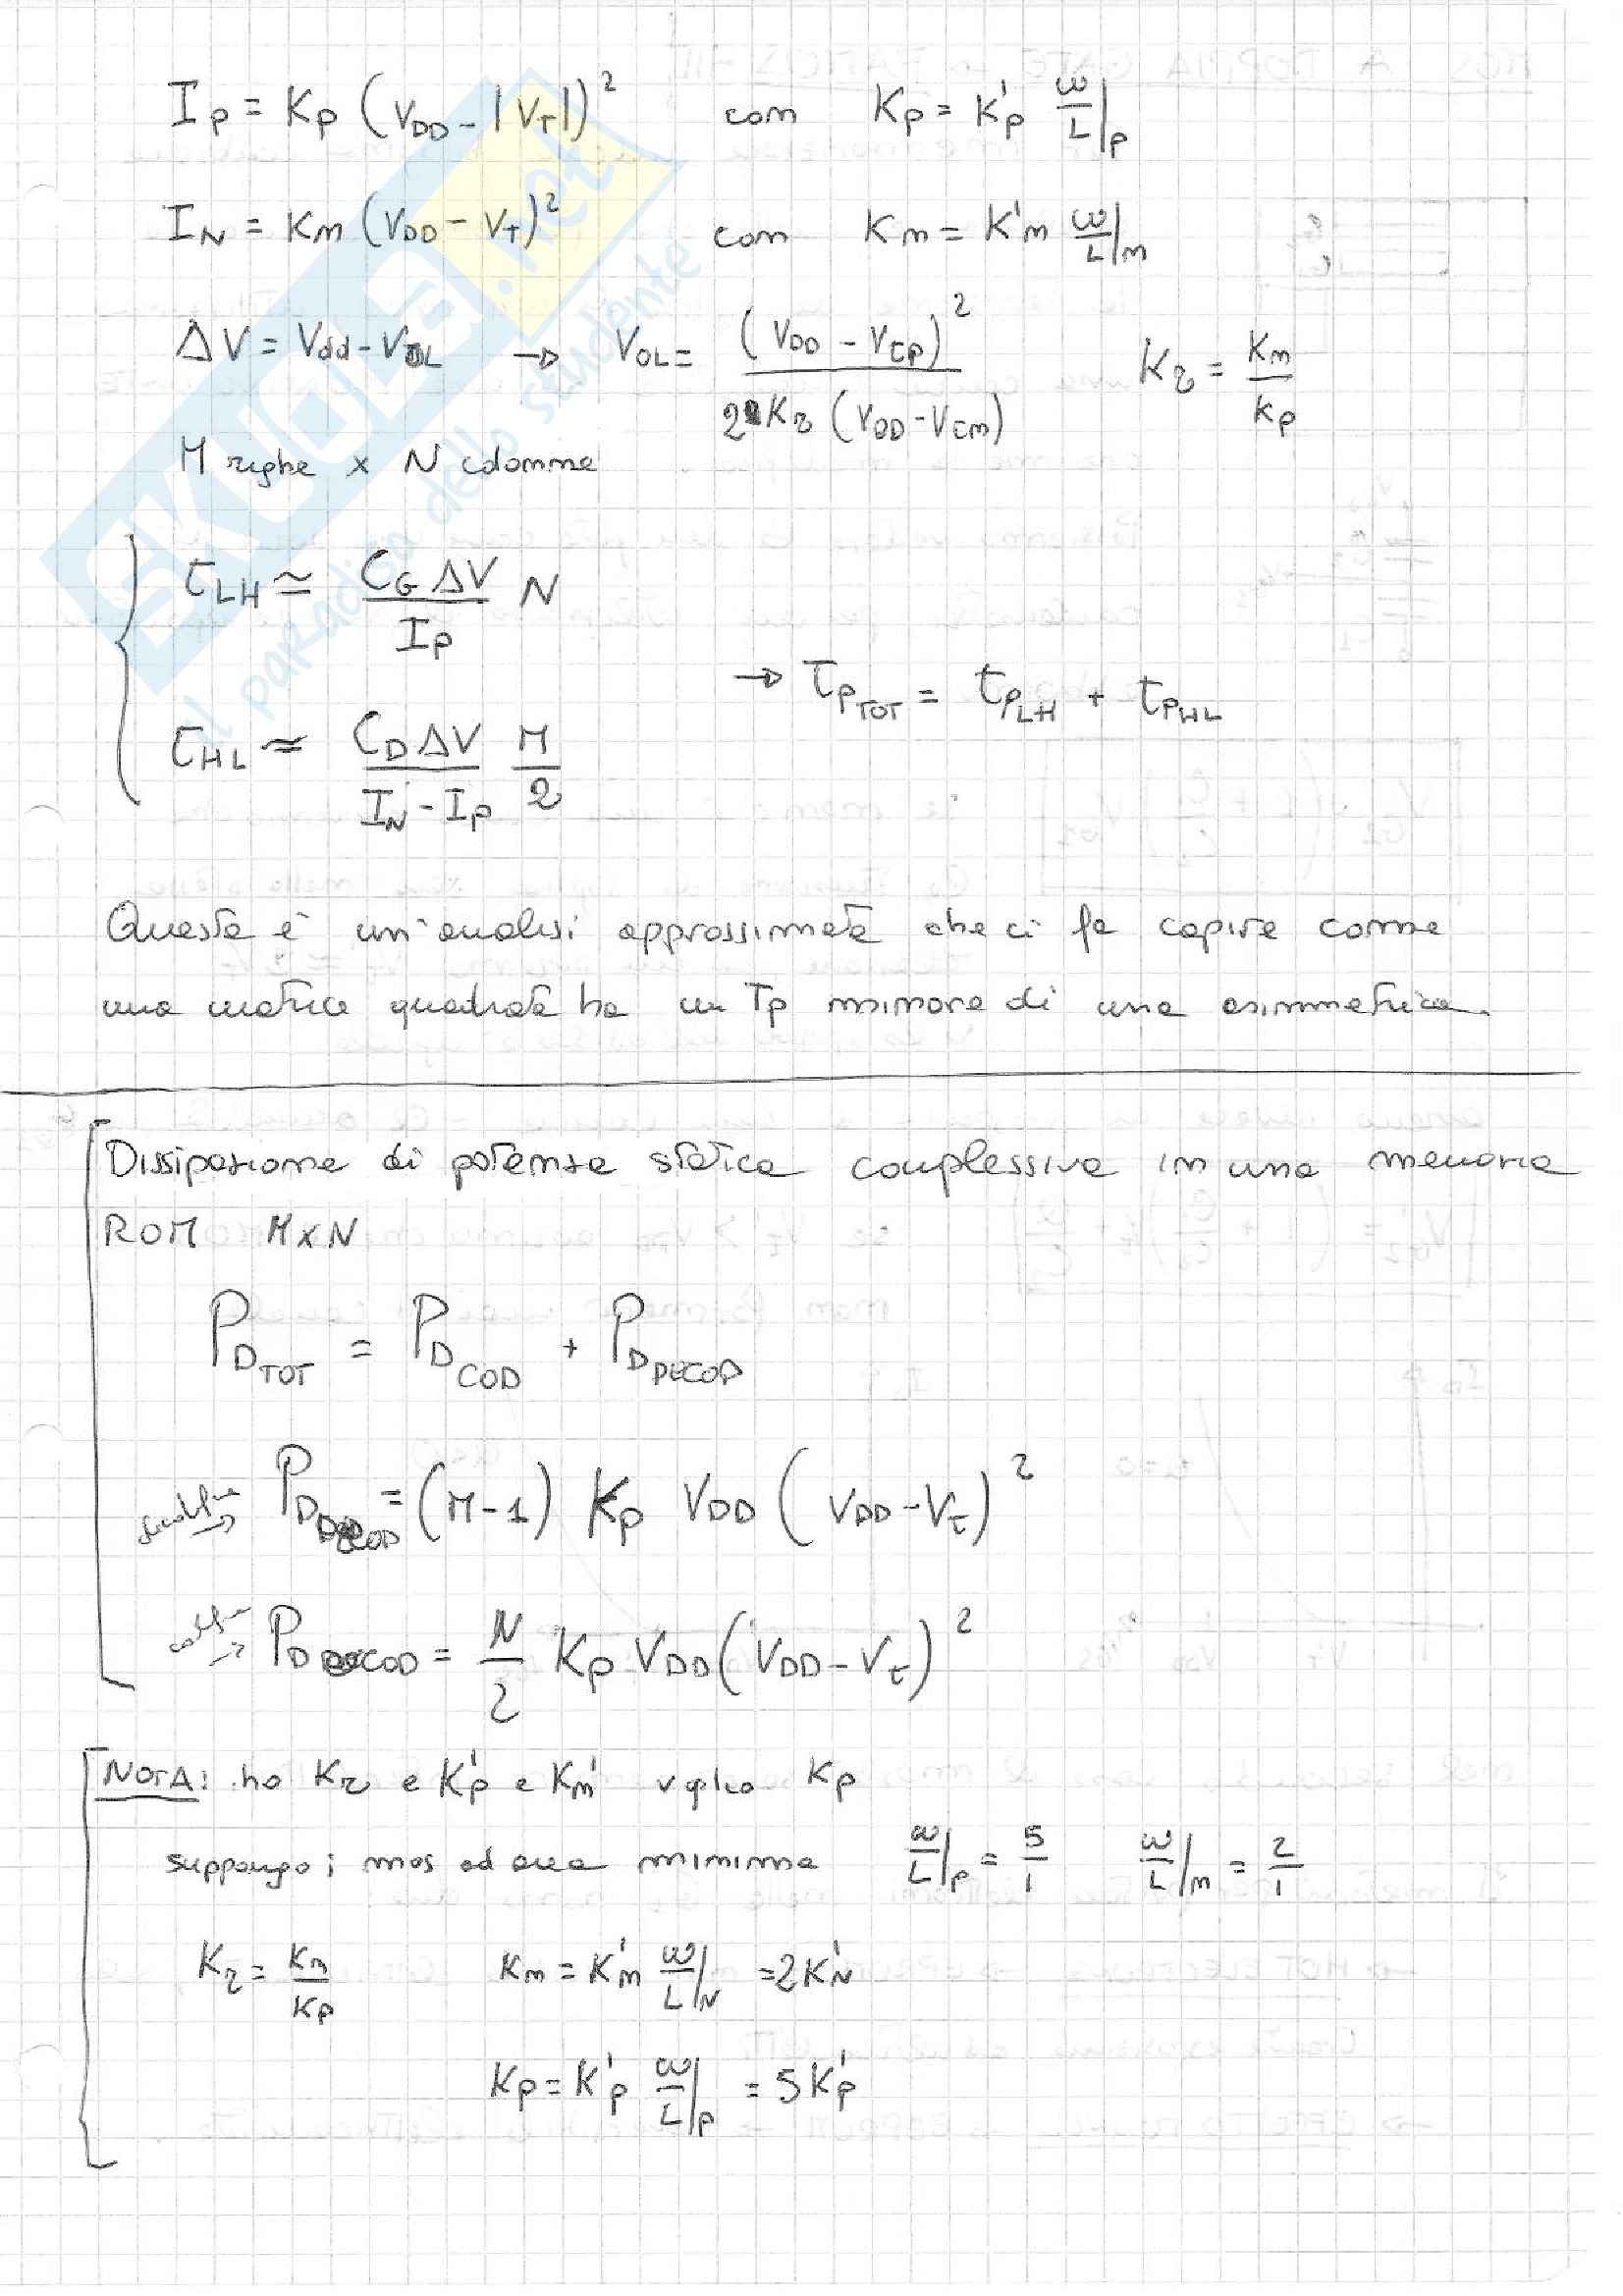 I_P = K_P (V_DD - |V_T|)²   con   K_P = K'_P W/L|_P
I_N = K_n (V_DD - V_T)²   con   K_n = K'_n W/L|_n
ΔV = V_dd - V_OL → V_OL = (V_DD - V_tp)² / 2 K_r (V_DD - V_tn)   K_r = K_n / K_p
M righe x N colonne
t_LH ≃ (C_G ΔV / I_P) N
→ t_P_TOT = t_P_LH + t_P_HL
t_HL ≃ (C_D ΔV / (I_N - I_P)) M/2
Questa è un'analisi approssimata che ci fa capire come
una matrice quadrata ha un Tp minore di una asimmetrica.
Dissipazione di potenza statica complessiva in una memoria
ROM MxN
P_D_TOT = P_D_COD + P_D_DECOD
decodifica → P_D_DECOD = (M-1) K_p V_DD (V_DD - V_t)²
codifica → P_D_COD = N/2 K_p V_DD (V_DD - V_t)²
NOTA: ho K_r e K'_p e K'_n voglio K_p
suppongo i mos ad area minima   W/L|_p = 5/1   W/L|_n = 2/1
K_r = K_n / K_p   K_n = K'_n W/L|_N = 2K'_N
K_p = K'_p W/L|_p = 5K'_p
SKUOLA.net
il paradiso dello studente